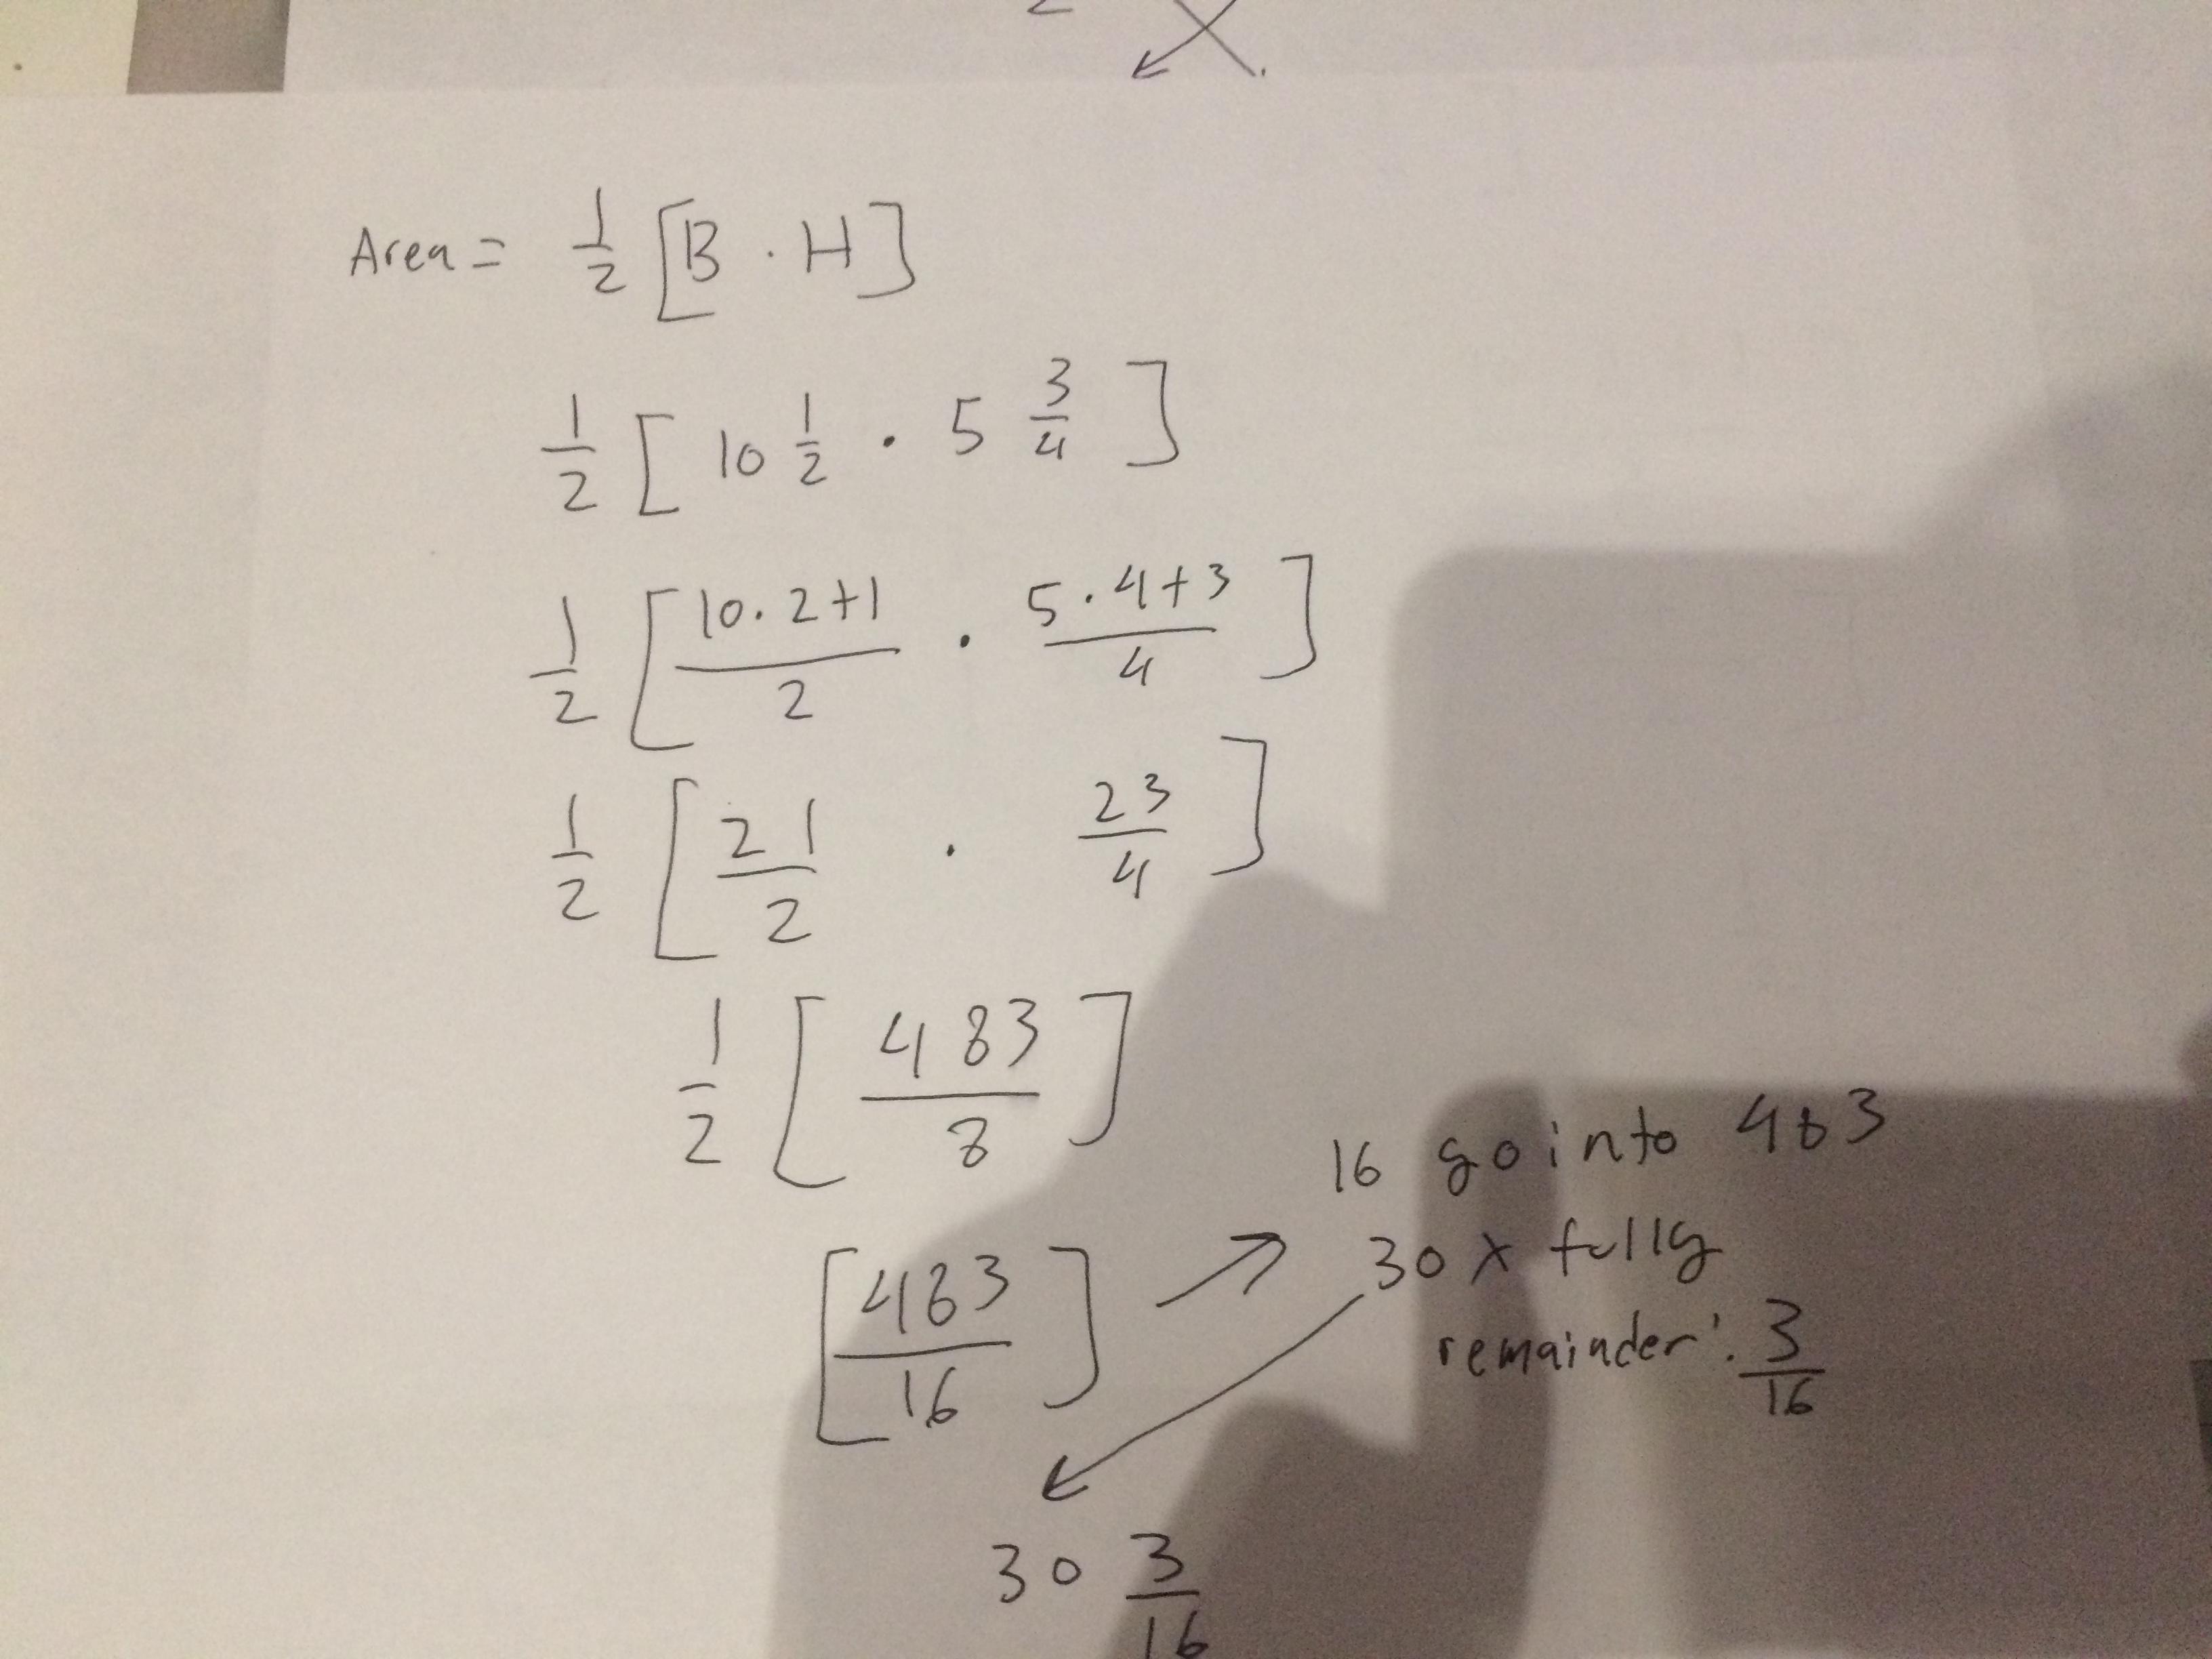 Area = 1/2 [B · H]
1/2 [10 1/2 · 5 3/4]
1/2 [10·2+1/2 · 5·4+3/4]
1/2 [21/2 · 23/4]
1/2 [483/8]
[483/16] → 16 go into 483
30 x fully
remainder: 3/16
30 3/16